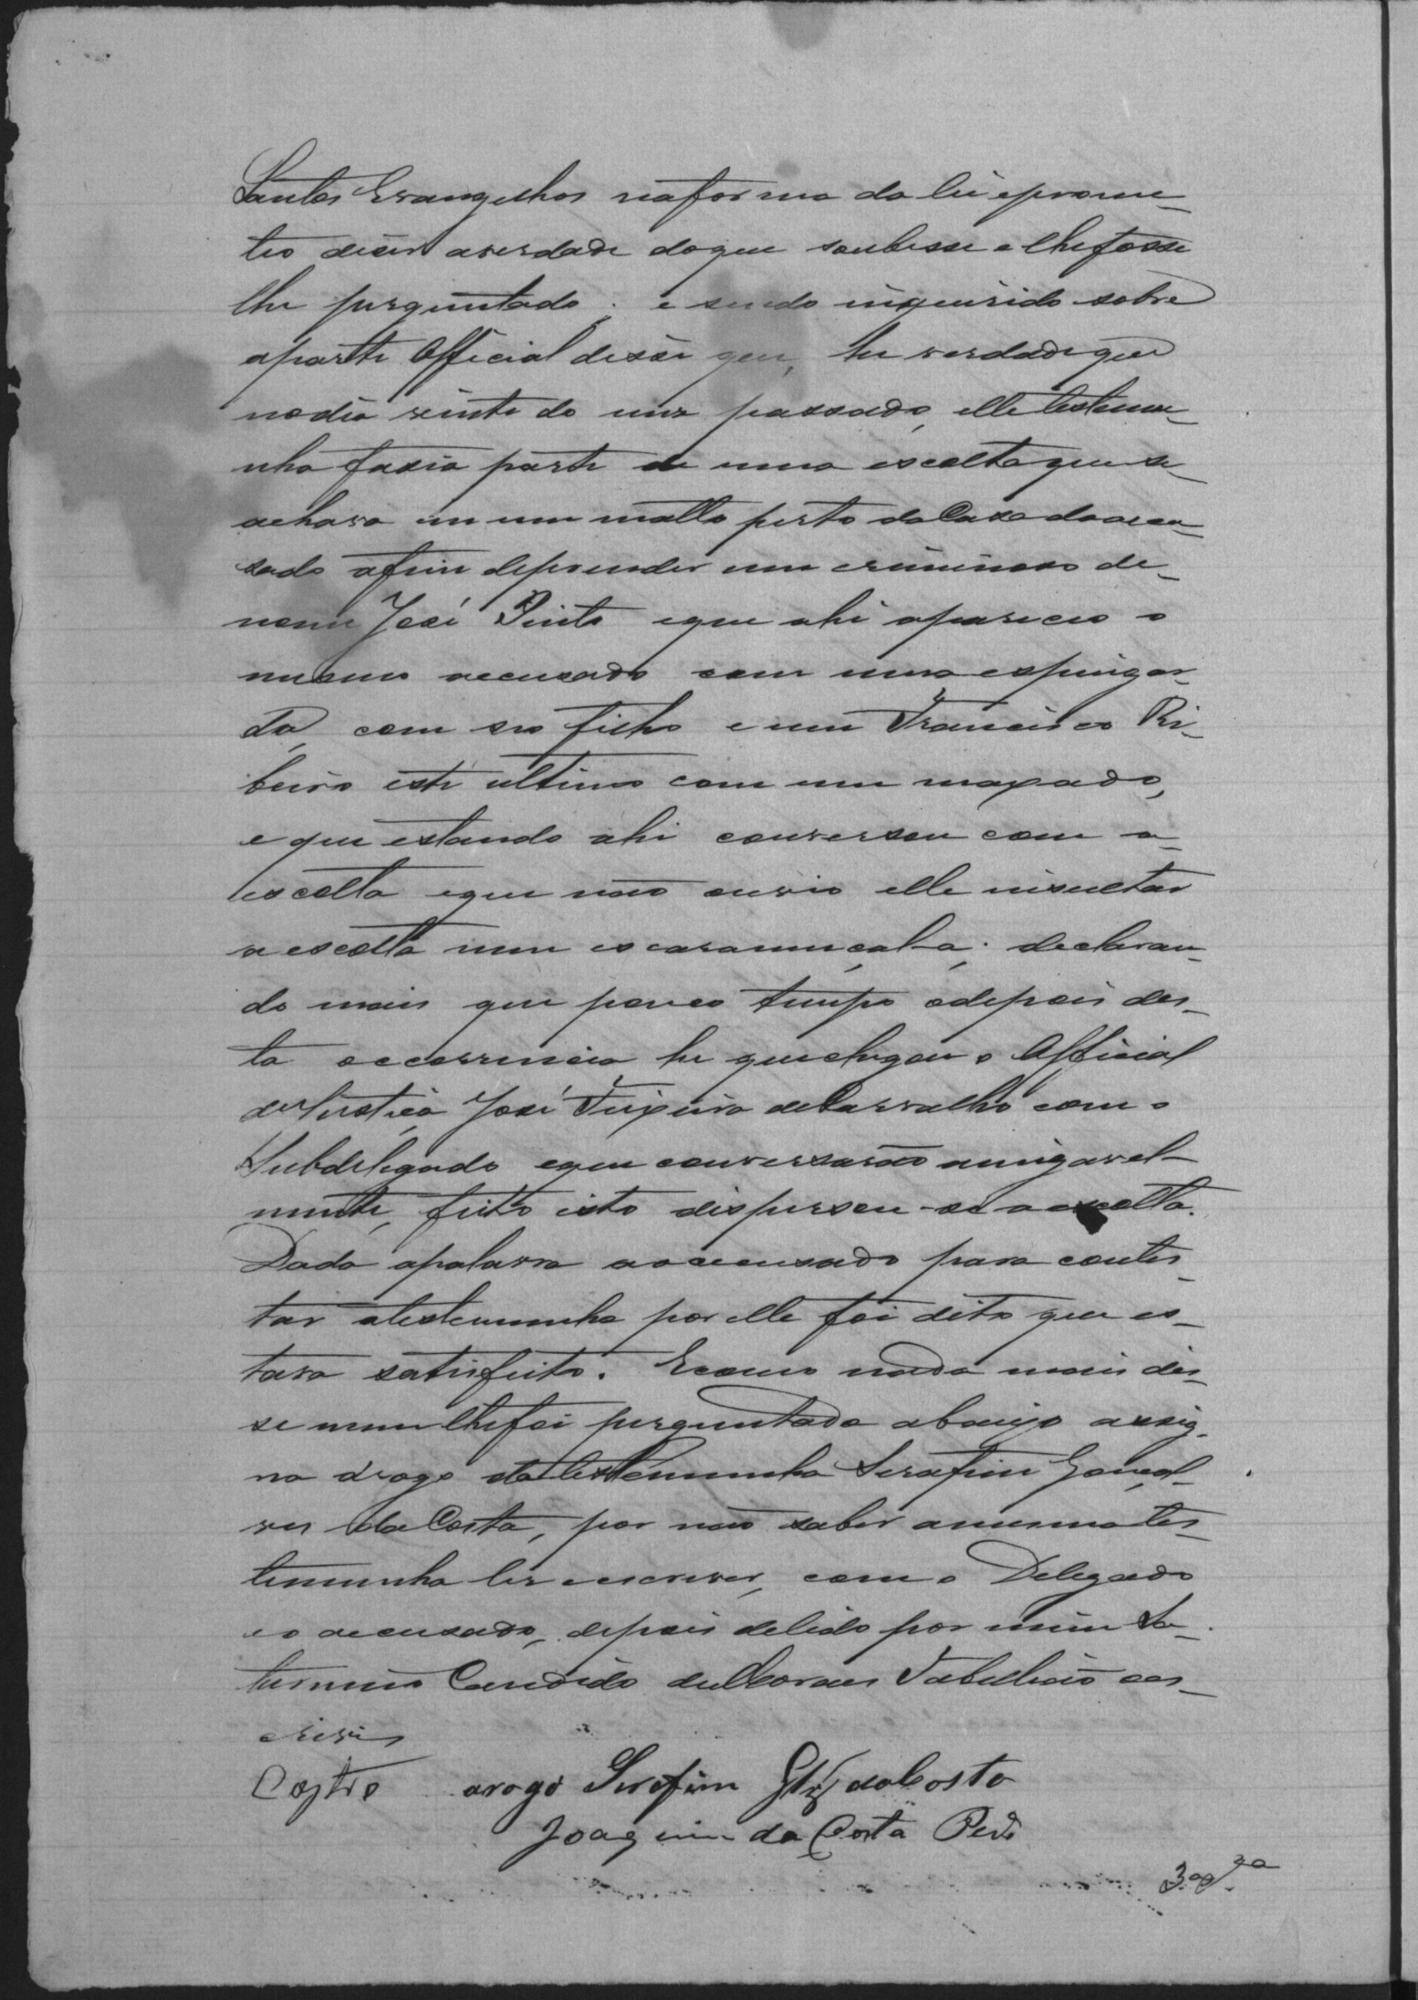 Santos Evangelhos na forma da lei e prome-
teo diser averdade do que soubesse e lhe fosse
lhe perguntado; e sendo inquirido sobre
aparte Official disse que, he verdade que
nodia vinte do mez passado, elle testemu-
nha fasia parte de uma escolta que se
achava em um matto perto da Casa do acu-
sado afim deprender um criminoso de-
nome José Pinto eque ahi apareceo o
mesmo accusado com uma espingar-
da, com seo filho e um Francisco Ri-
beiro este ultimo com um maxado,
e que estando ahi conversou com a-
escolta eque não ouvio elle insultar
a escolta nem escaramuçal-a; declaran-
do mais que pouco tempo adepois des-
ta occorrencia he que chegou o Official
deJustiça José Teixeira deCarvalho com o
Subdelegado eque conversarão amigavel-
mente, feito isto dispersou-se a escolta.
Dada apalavra ao accusado para contes-
tar atestemunha por elle foi dito que es-
tava satisfeito. Ecomo nada mais dis-
se nem lhefoi perguntado abaixo assig-
na arogo da testemunha Serafim Gonçal-
ves da Costa, por não saber amesma tes-
temunha ler e escrever, com o Delegado
eo accusado, depois delido por mim Sa-
turnino Candido de Moraes Tabellião oes-
crevi
Castro arogo Serafim Glz daCosta
Joaquim da Costa
3ª